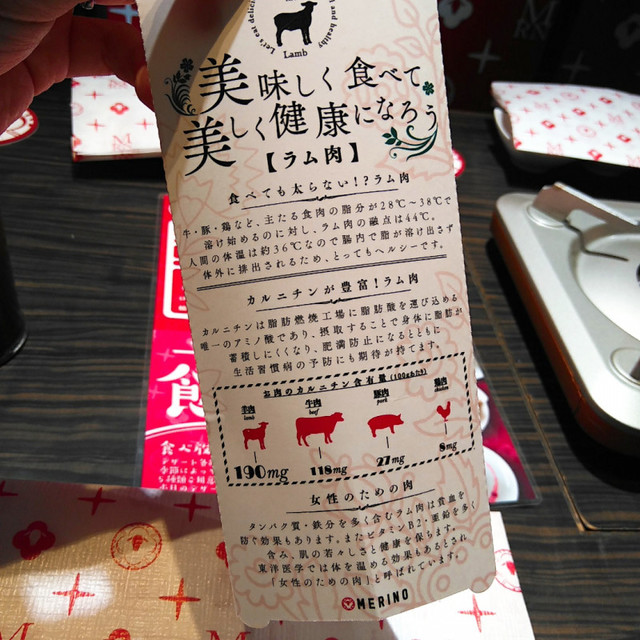 Let's eat delici
and healthy
Lamb
美味しく食べて
美しく健康になろう
【ラム肉】
食べても太らない!?ラム肉
牛・豚・鶏など、主たる食肉の脂分が28℃〜38℃で
溶け始めるのに対し、ラム肉の融点は44℃。
人間の体温は約36℃なので腸内で脂が溶け出さず
体外に排出されるため、とってもヘルシーです。
カルニチンが豊富!ラム肉
カルニチンは脂肪燃焼工場に脂肪酸を運び込める
唯一のアミノ酸であり、摂取することで身体に脂肪が
蓄積しにくくなり、肥満防止になるとともに
生活習慣病の予防にも期待が持てます。
お肉のカルニチン含有量(100gあたり)
羊肉 牛肉 豚肉 鶏肉
lamb beef pork chicken
190mg 118mg 27mg 8mg
女性のための肉
タンパク質・鉄分を多く含むラム肉は貧血を
防ぐ効果もあります。またビタミンB2、亜鉛を多く
含み、肌の若々しさと健康を保ちます。
東洋医学では体を温める効果もあるとされ
「女性のための肉」と呼ばれています。
MERINO
食
食べ放